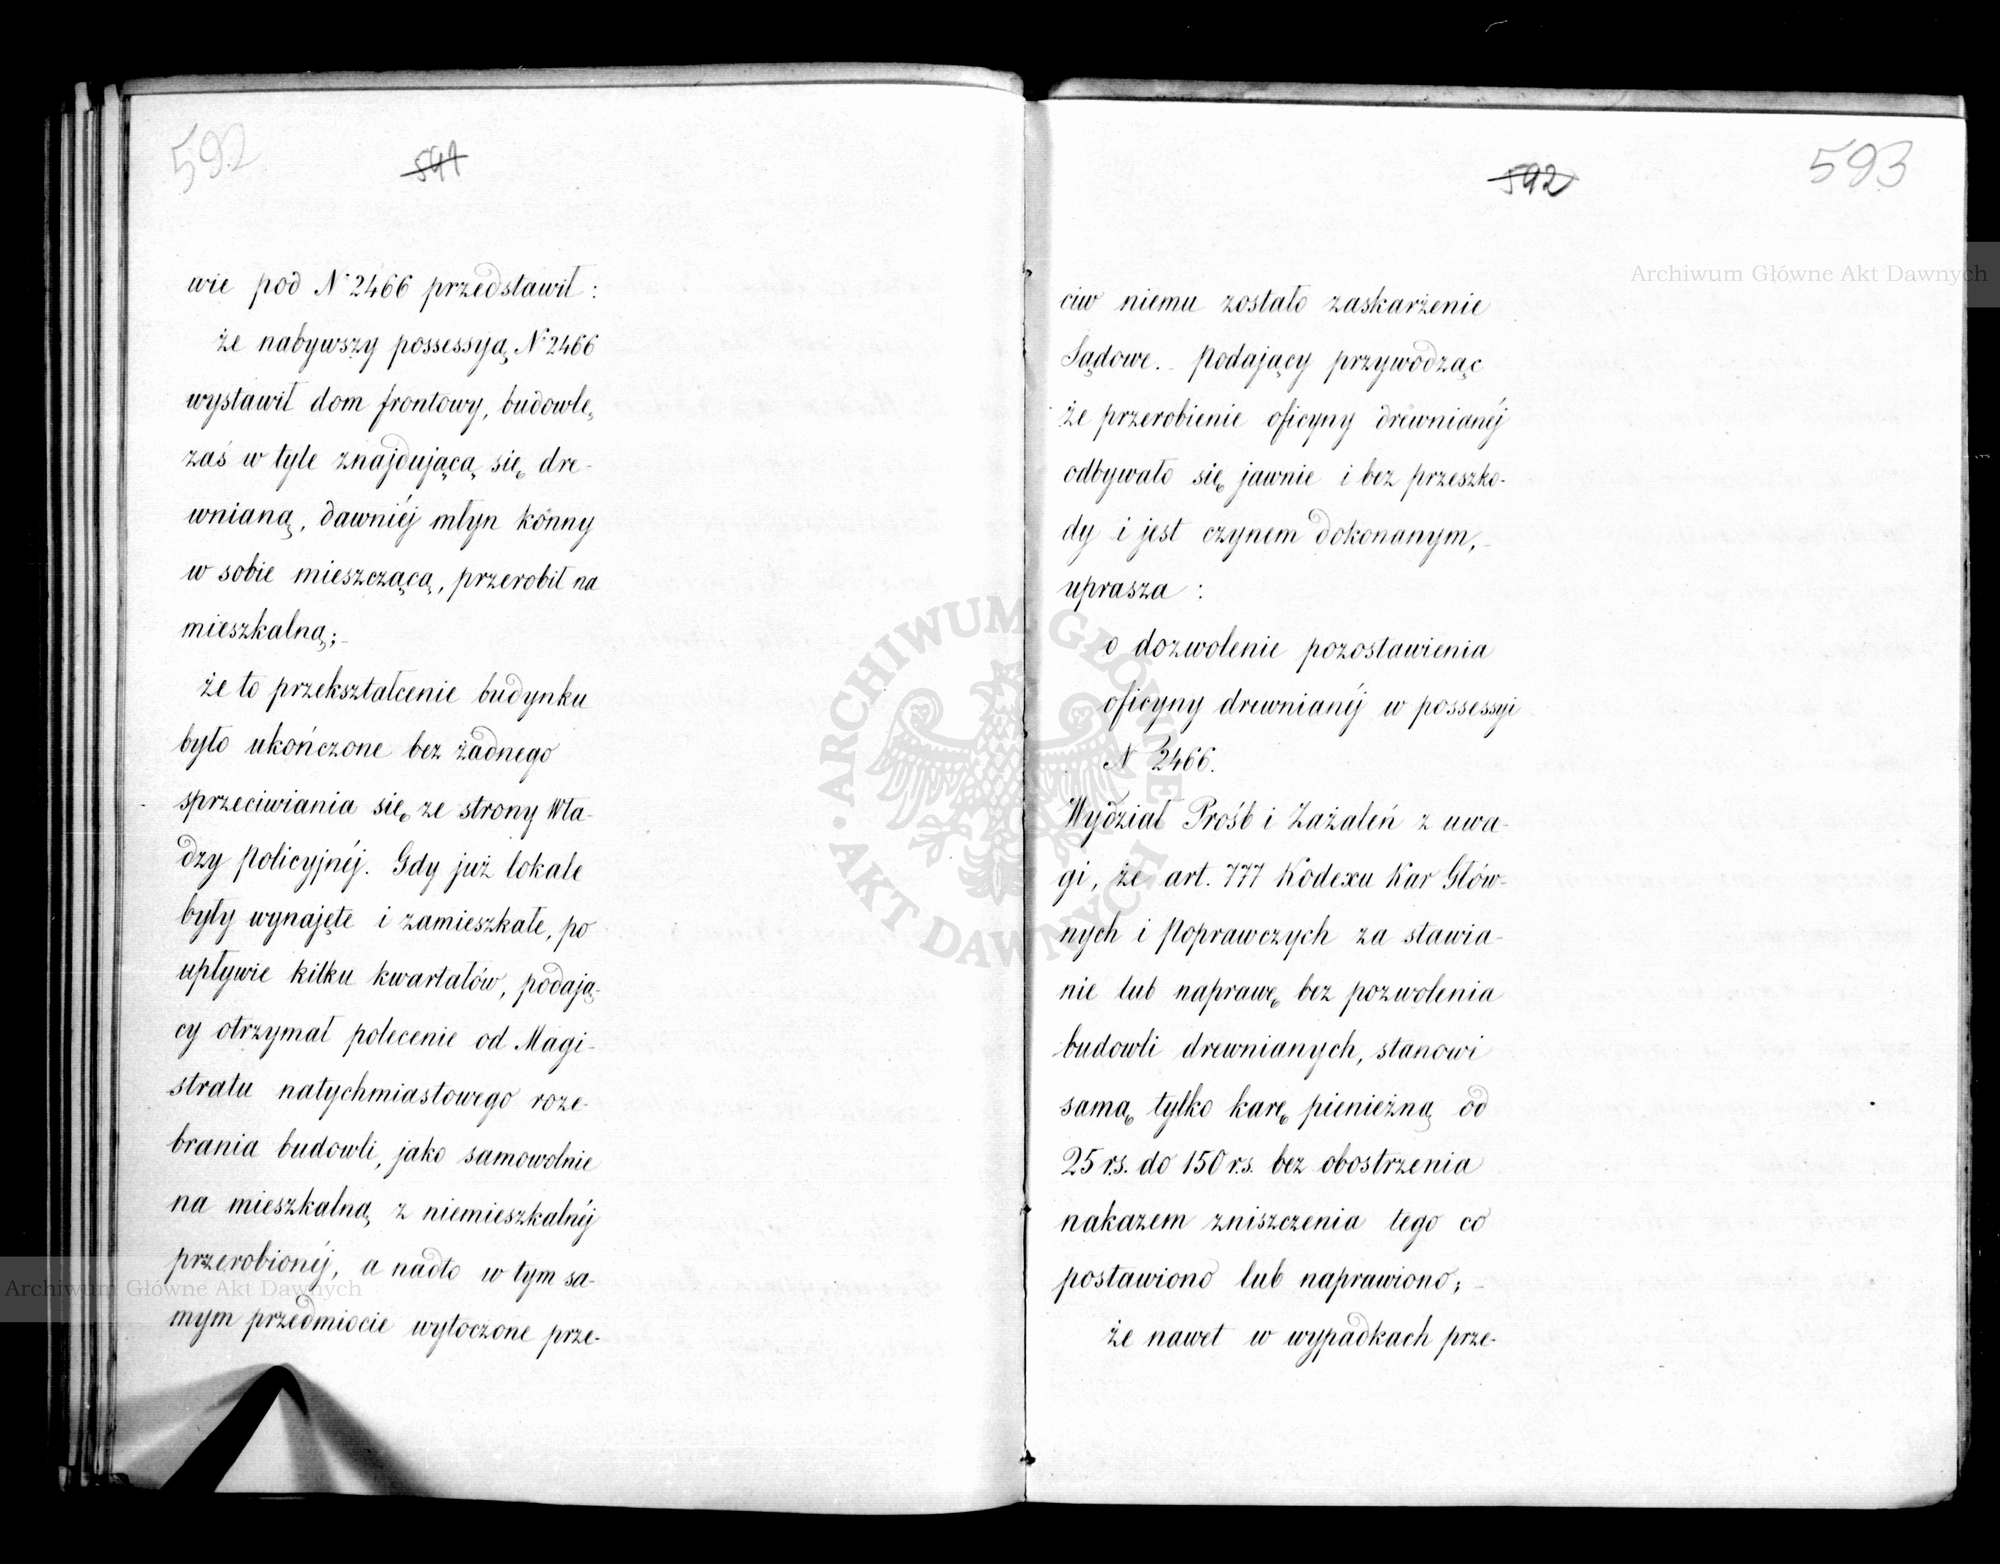 592
591
wie pod N 2466 przedstawił:
że nabywszy possessyą N 2466
wystawił dom frontowy, budowlę,
zaś w tyle znajdującą się dre-
wnianą, dawniéj młyn konny
w sobie mieszczącą, przerobił na
mieszkalną;-
że to przekształcenie budynku
było ukończone bez żadnego
sprzeciwiania się ze strony Wła-
dzy Policyjnéj. Gdy już lokale
były wynajęte i zamieszkałe, po
upływie kilku kwartałów, podają-
cy otrzymał polecenie od Magi-
stratu natychmiastowego roze-
brania budowli, jako samowolnie
na mieszkalną z niemieszkalnéj
przerobionéj, a nadto w tym sa-
mym przedmiocie wytoczone prze-
592
593
ciw niemu zostało zaskarżenie
Sądowe.- Podający przywodząc
że przerobienie oficyny drewnianéj
odbywało się jawnie i bez przeszko-
dy i jest czynem dokonanym,-
uprasza :
o dozwolenie pozostawienia
oficyny drewnianéj w possessyi
N 2466.
Wydział Próśb i Zażaleń z uwa-
gi, że art. 777 Kodexu Kar Głów-
nych i Poprawczych za stawia-
nie lub naprawę bez pozwolenia
budowli drewnianych, stanowi
samą tylko karę pieniężną od
25 rs. do 150 rs. bez obostrzenia
nakazem zniszczenia tego co
postawiono lub naprawiono;-
że nawet w wypadkach prze-
Archiwum Główne Akt Dawnych
Archiwum Główne Akt Dawnych
ARCHIWUM GŁÓWNE
AKT DAWNYCH